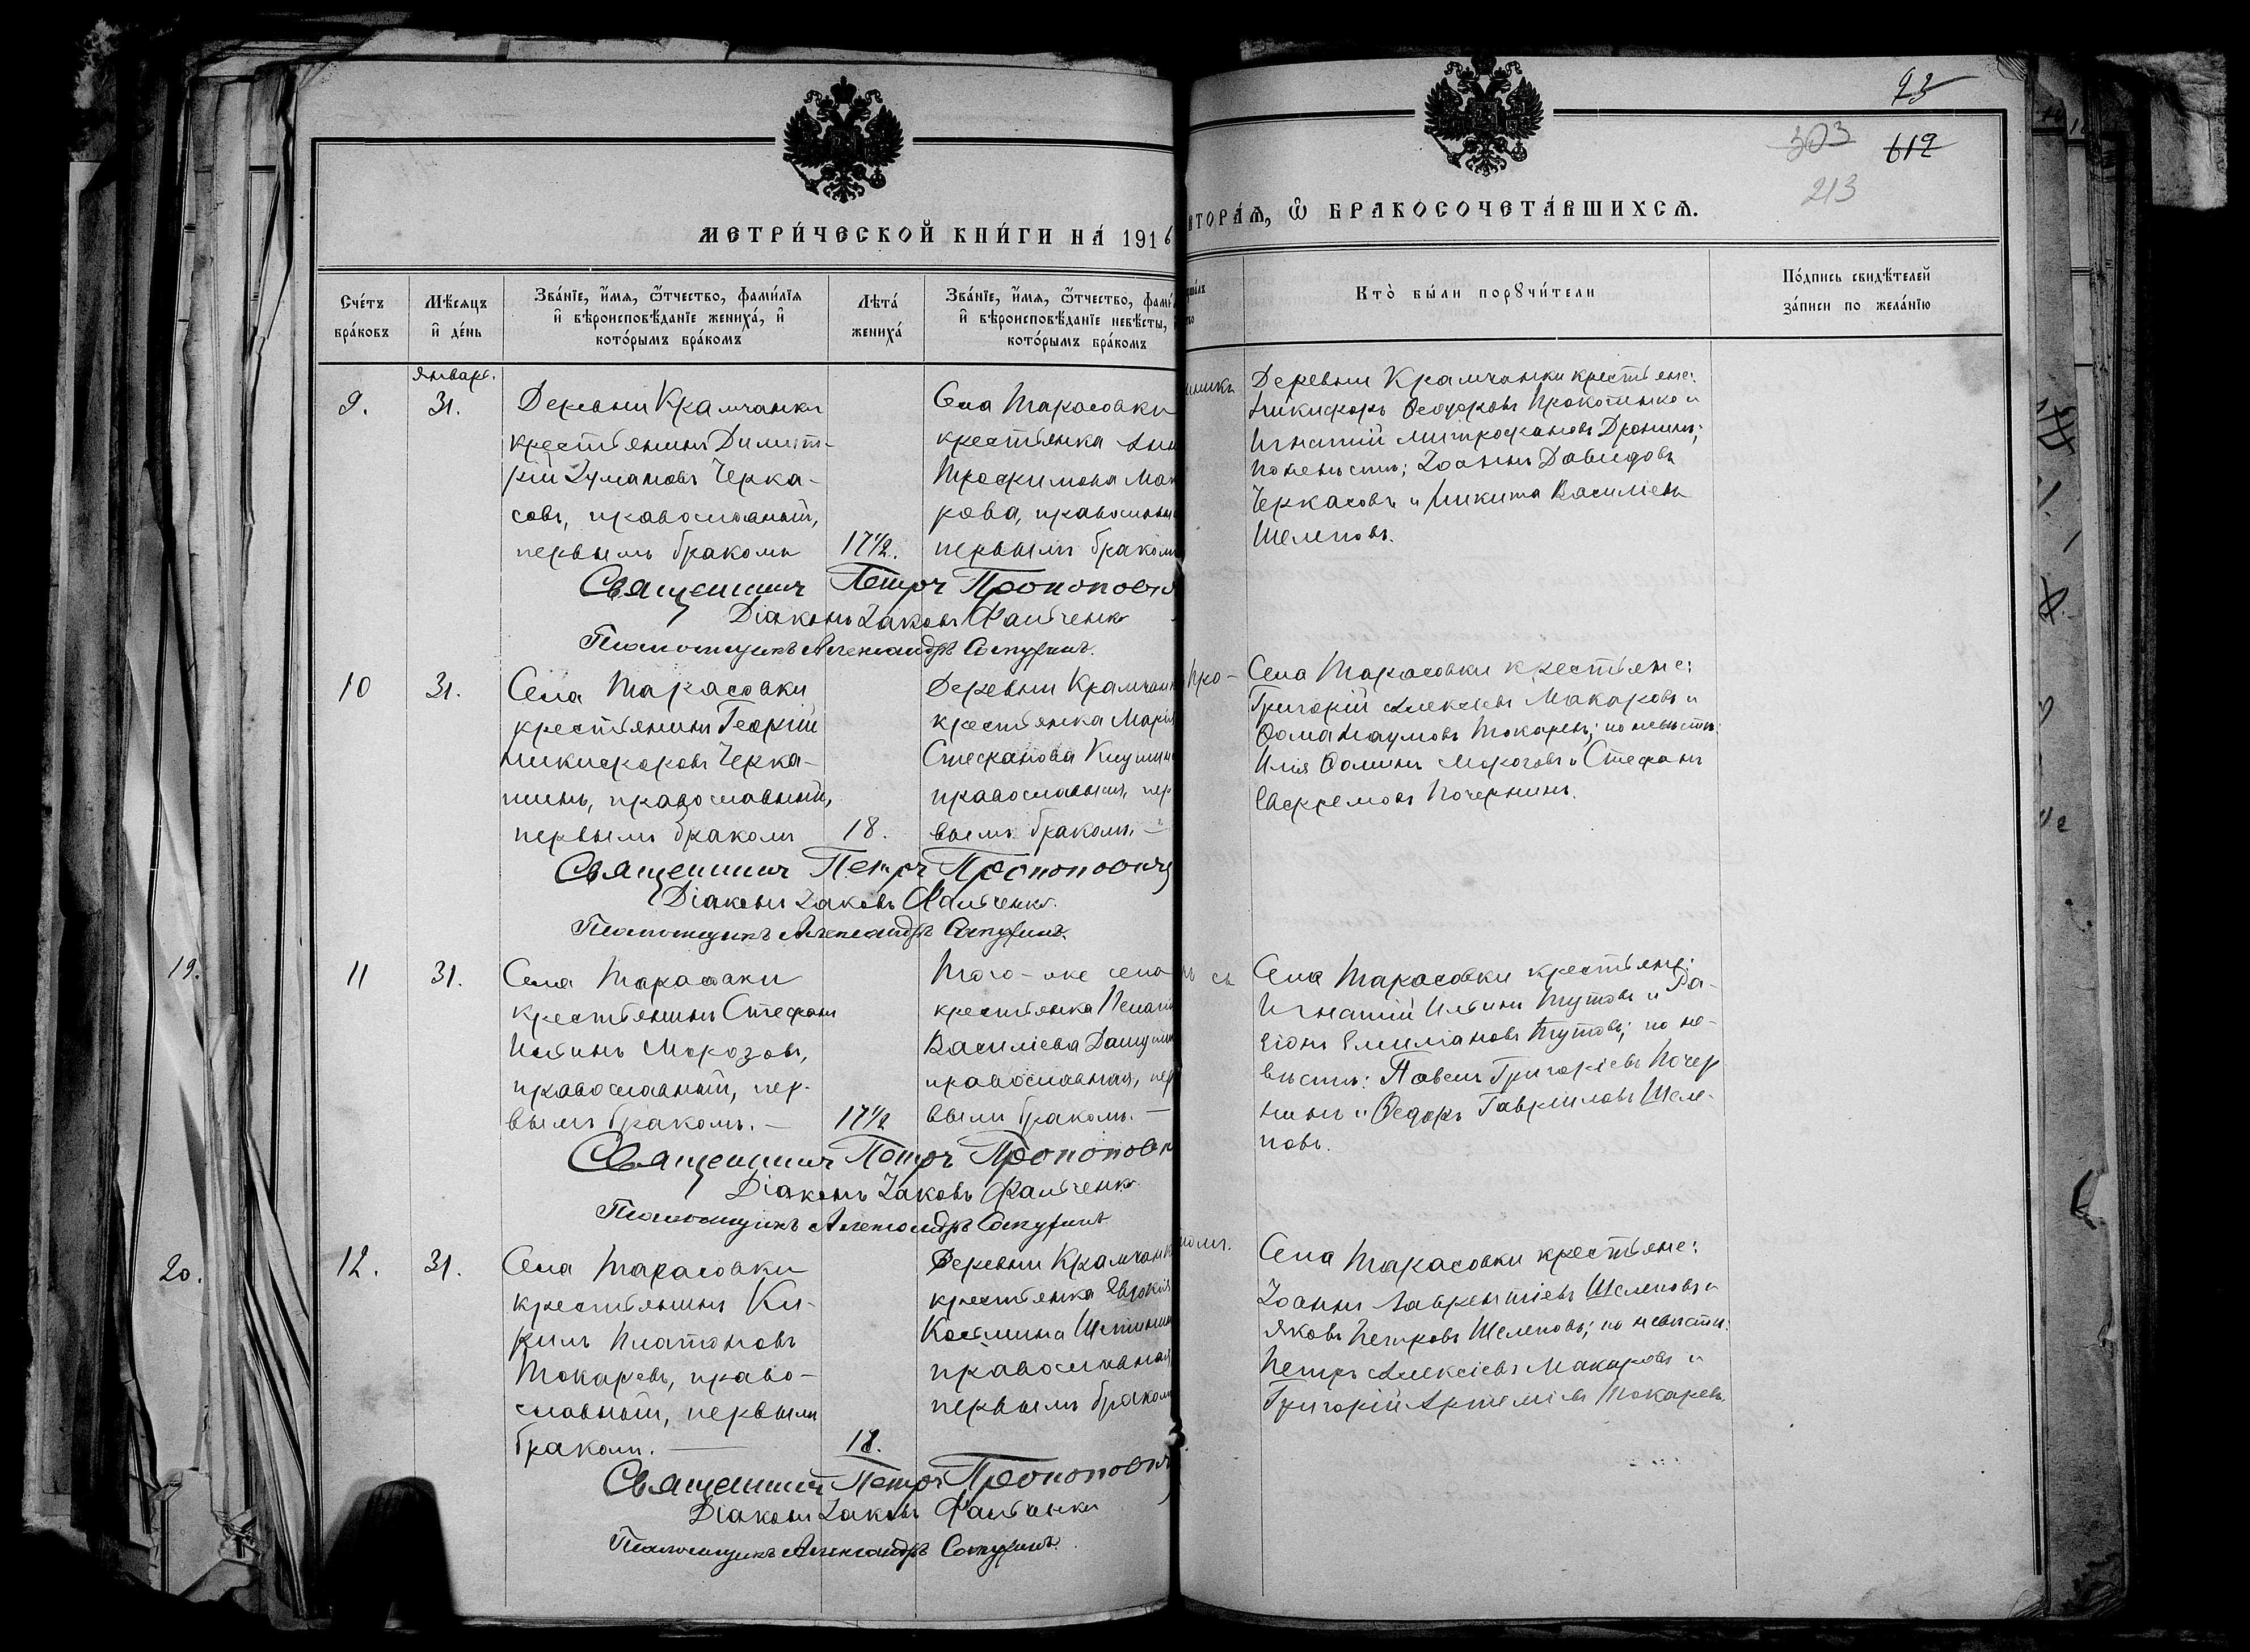 93
303 612
213
МЕТРИ́ЧЕСКОЙ КНИ́ГИ НА́ 1916
ВТОРА́Я, Ѿ БРАКОСОЧЕТА́ВШИХСЯ.
Сче́тъ бра́ковъ
Мѣ́сяцъ и҆ де́нь
Зва́нїе, и҆́мя, ѻ҆́тчество, фами́лїя
и҆ вѣроисповѣ́данїе жениха́, и҆
кото́рымъ бра́комъ
Лѣ́та жениха́
Зва́нїе, и҆́мя, ѻ҆́тчество, фами́
и҆ вѣроисповѣ́данїе невѣ́сты,
кото́рымъ бра́комъ
Кто̀ бы́ли порꙋчи́тели
По́дпись свидѣ́телей
за́писи по жела́нїю
Январь.
9.
31.
Деревни Крамчанки
крестьянинъ Димит-
рій Іумановъ Черка-
совъ, православный,
первымъ бракомъ
17½.
Села Тарасовки
крестьянка
Трофимова Мак
рова, православн
первымъ браком
Деревни Крамчанки крестьяне:
Никифоръ Ѳеодоровъ Прокопенко и
Игнатій Митрофановъ Дронинъ;
по невѣстѣ; Іоаннъ Давидовъ
Черкасовъ и Никита Васильевъ
Шелеповъ.
Священникъ Петръ Прокопови
Діаконъ Іаковъ Фальченко
Псаломщикъ Александръ
10
31.
Села Тарасовки
крестьянинъ Георгій
Никифоровъ Черка-
шинъ, православный,
первымъ бракомъ
18.
Деревни Крамчанк
крестьянка Марія
Стефанова
православная, пер
вымъ бракомъ. —
Села Тарасовки крестьяне:
Григорій Алексіевъ Макаровъ и
Ѳома Наумовъ Токаревъ; по невѣстѣ:
Илія Ѳоминъ Морозовъ и Стефанъ
Евфремовъ Почернинъ.
Священникъ Петръ Прокопович
Діаконъ Іаковъ Фальченко.
Псаломщикъ Александръ
19.
11
31.
Села Тарасовки
крестьянинъ Стефанъ
Ильинъ Морозовъ,
православный, пер-
вымъ бракомъ. —
17½
Того-же села
крестьянка Пелаг
Василіева
православная, пер
вымъ бракомъ. —
Села Тарасовки крестьяне:
Игнатій Ильинъ Тутовъ и Ро-
діонъ Емиліановъ Тутовъ; по не-
вѣстѣ: Павелъ Григоріевъ Почер
нинъ и Ѳедоръ Гавріиловъ Шеле-
повъ.
Священникъ Петръ Прокопови
Діаконъ Іаковъ Фальченко
Псаломщикъ Александръ
20.
12.
31.
Села Тарасовки
крестьянинъ Ки-
рилъ Платоновъ
Токаревъ, право-
славный, первымъ
бракомъ. —
18.
Деревни Крамчанк
крестьянка Евдокія
Косьмина
православная
первымъ браком
Села Тарасовки крестьяне:
Іоаннъ Лаврентіевъ Шелеповъ и
Яковъ Петровъ Шелеповъ; по невѣстѣ:
Петръ Алексіевъ Макаровъ и
Григорій Артеміевъ Токаревъ.
Священникъ Петръ Прокопович
Діаконъ Іаковъ Фальченко
Псаломщикъ Александръ